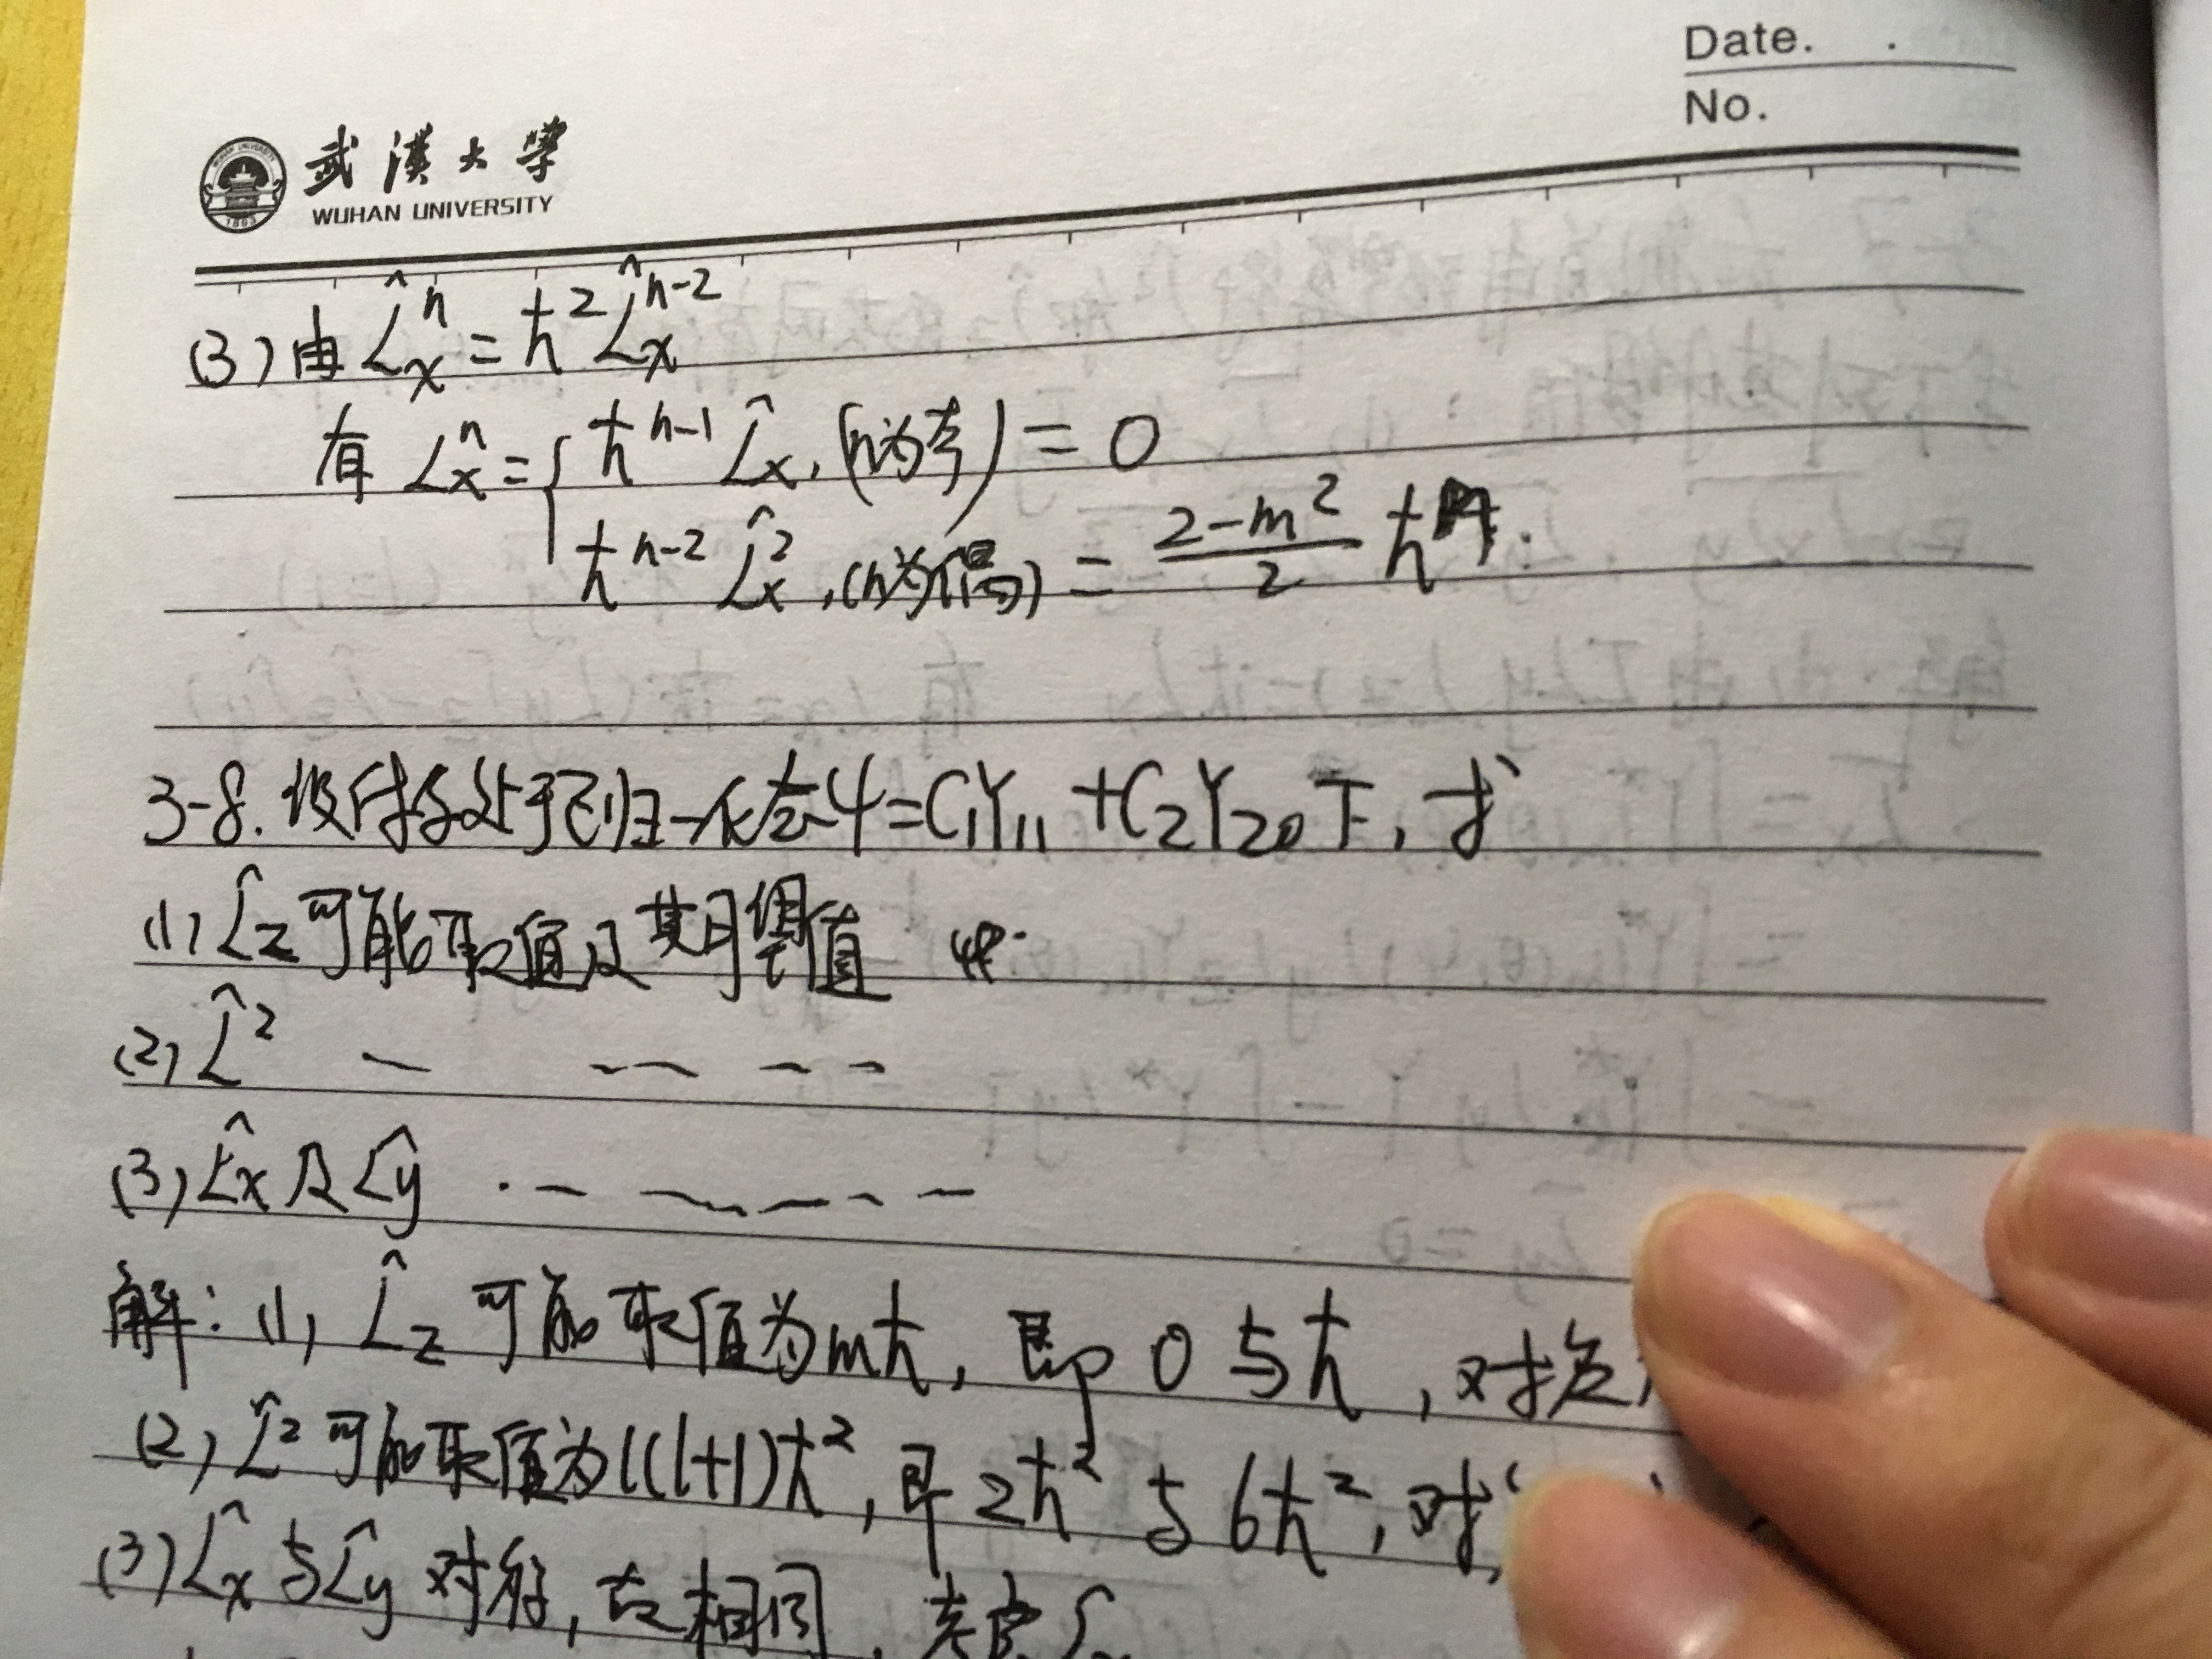 Date.
No.
武漢大學
WUHAN UNIVERSITY
1893
(3) 由 L̂ₓⁿ = ħ² L̂ₓⁿ⁻²
有 Lₓⁿ = { ħⁿ⁻¹ L̂ₓ, (n为奇) = 0
ħⁿ⁻² L̂ₓ², (n为偶) = (2-m²)/2 ħⁿ.
3-8. 设体系处于已归一化态ψ=C₁Y₁₁+C₂Y₂₀下, 求
(1) L̂z 可能取值及其期望值
(2) L̂²
(3) L̂x 及 L̂y
解: (1) L̂z 可能取值为mħ, 即 0 与 ħ, 对应
(2) L̂² 可能取值为l(l+1)ħ², 即 2ħ² 与 6ħ², 对
(3) L̂x 与 L̂y 对称, 故相同, 考虑